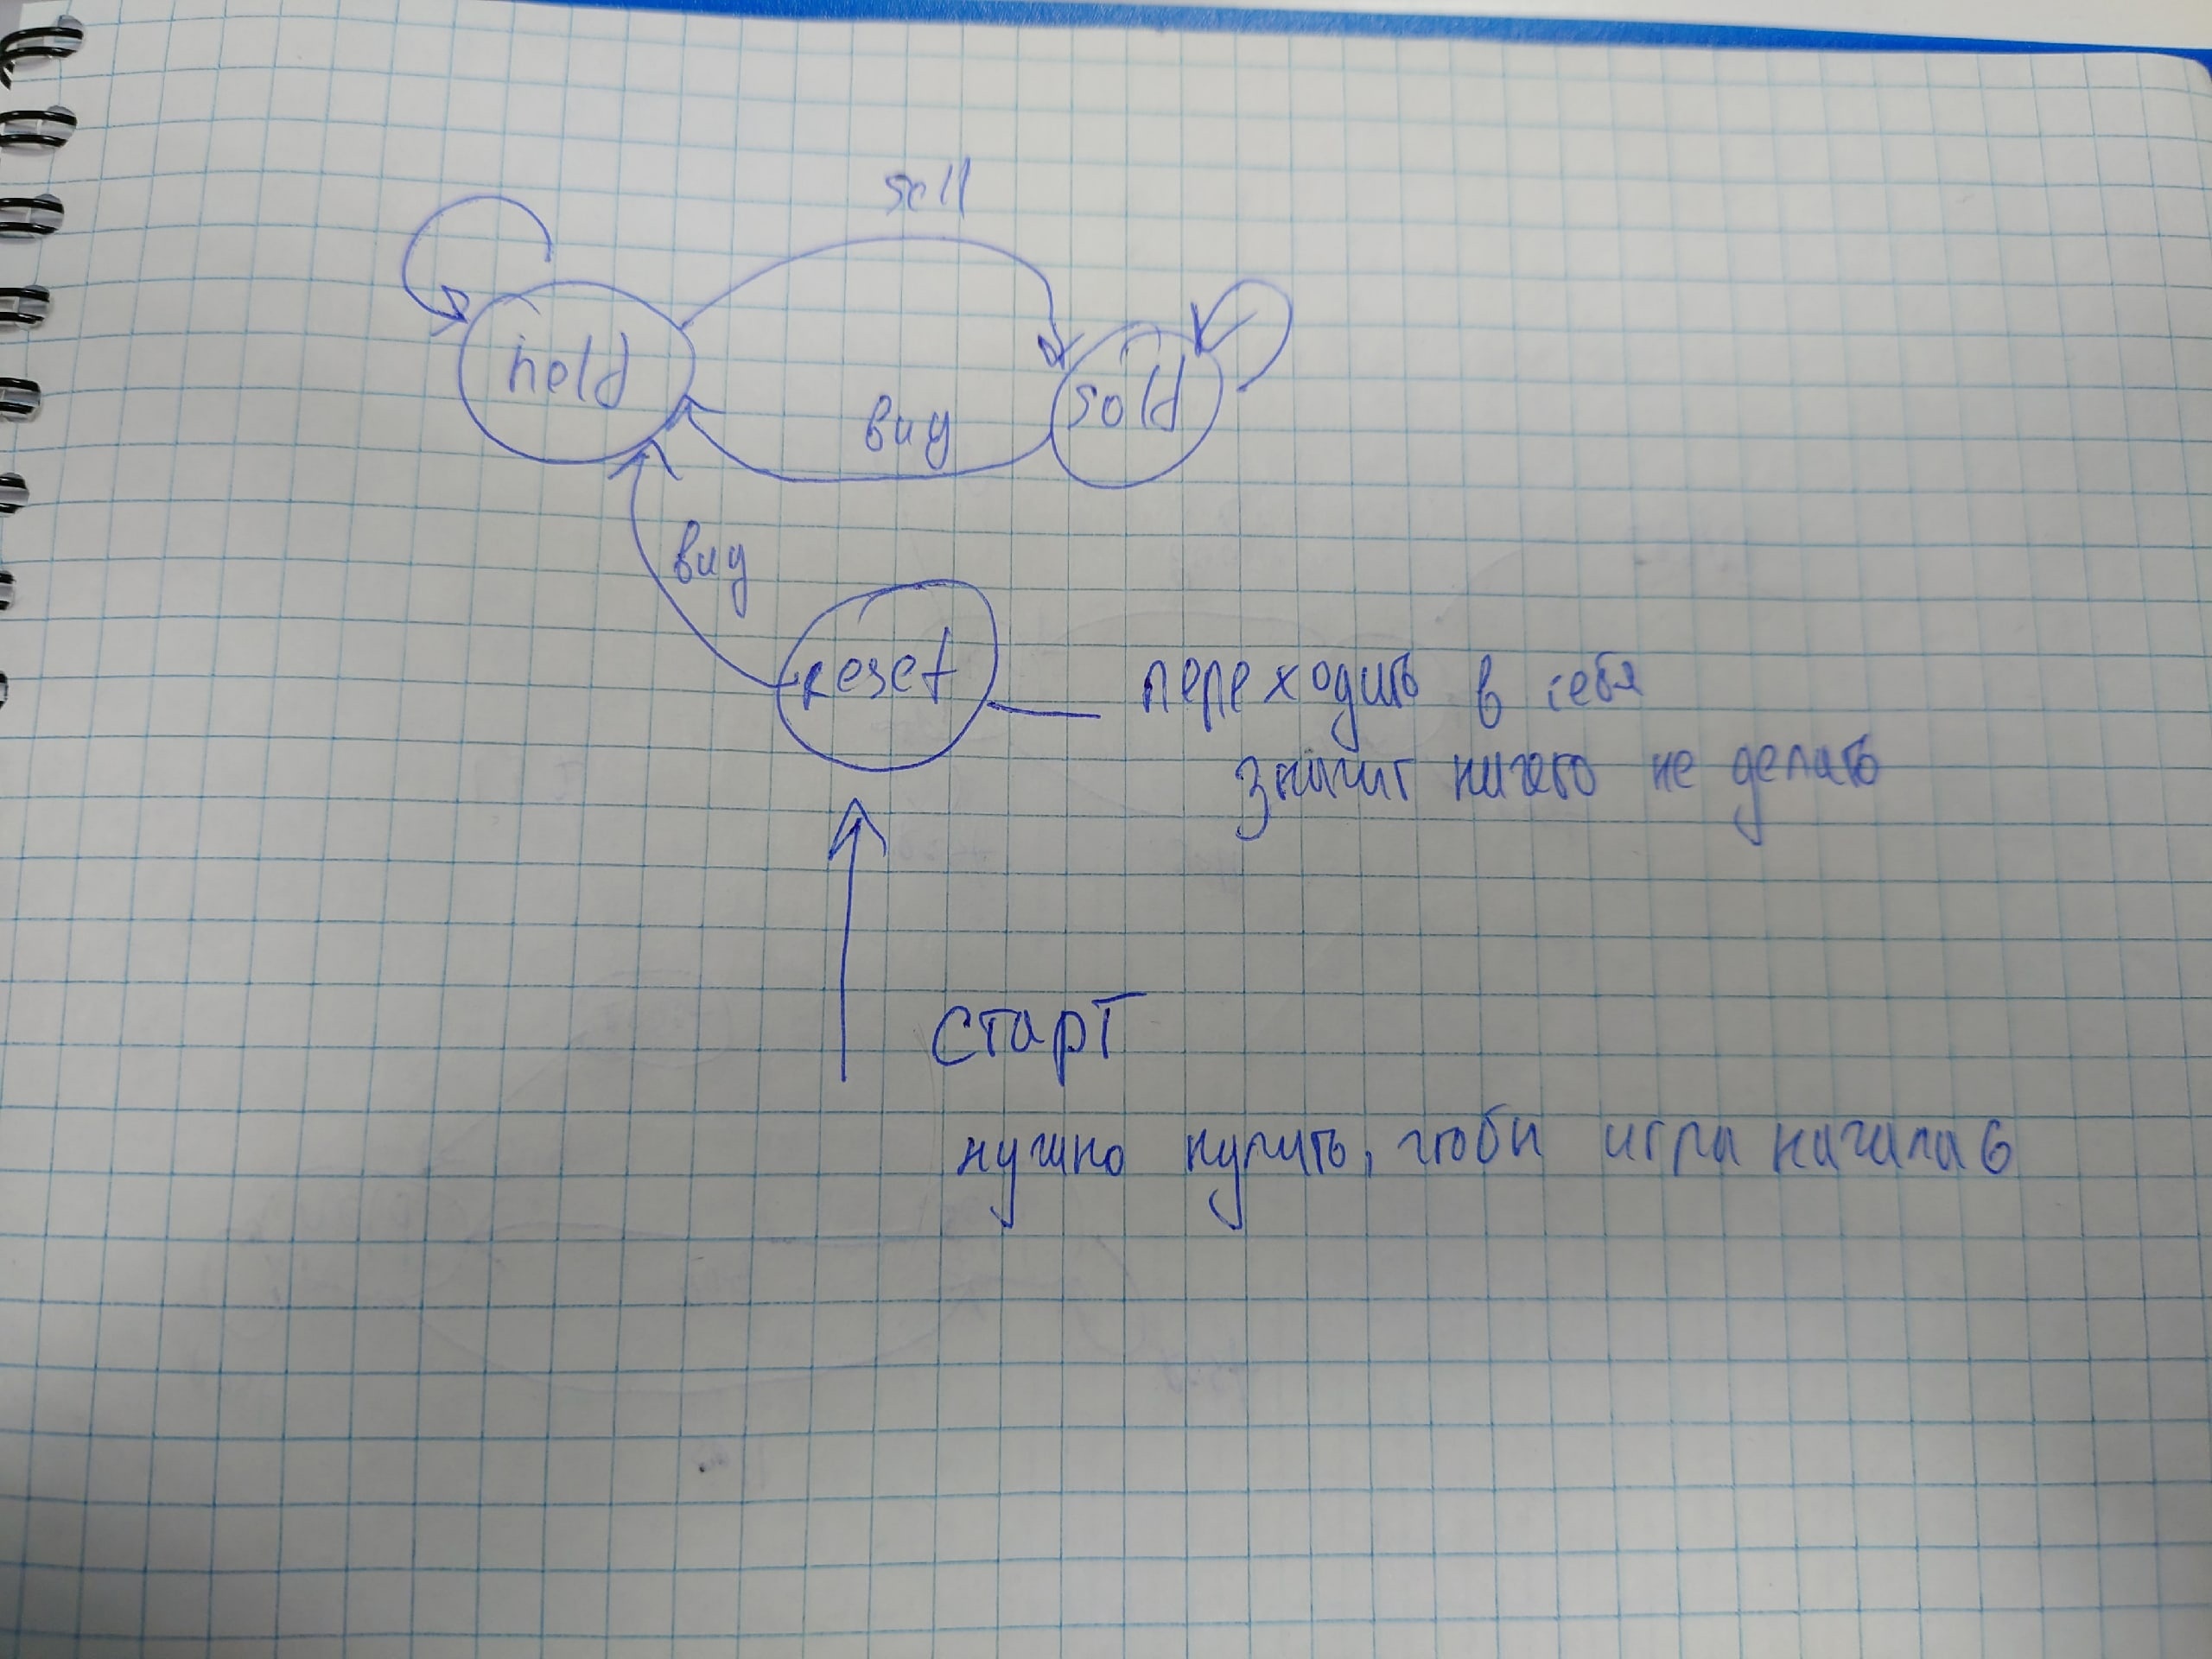 sell
held
sold
buy
buy
reset
переходить в себя
значит ничего не делать
старт
нужно купить, чтобы игра началась